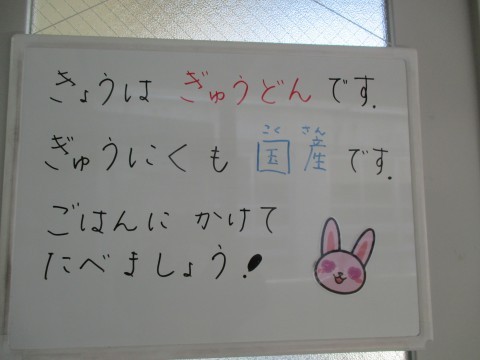 きょうは ぎゅうどん です.
こく さん
ぎゅうにくも 国産 です.
ごはんに かけて
たべましょう!